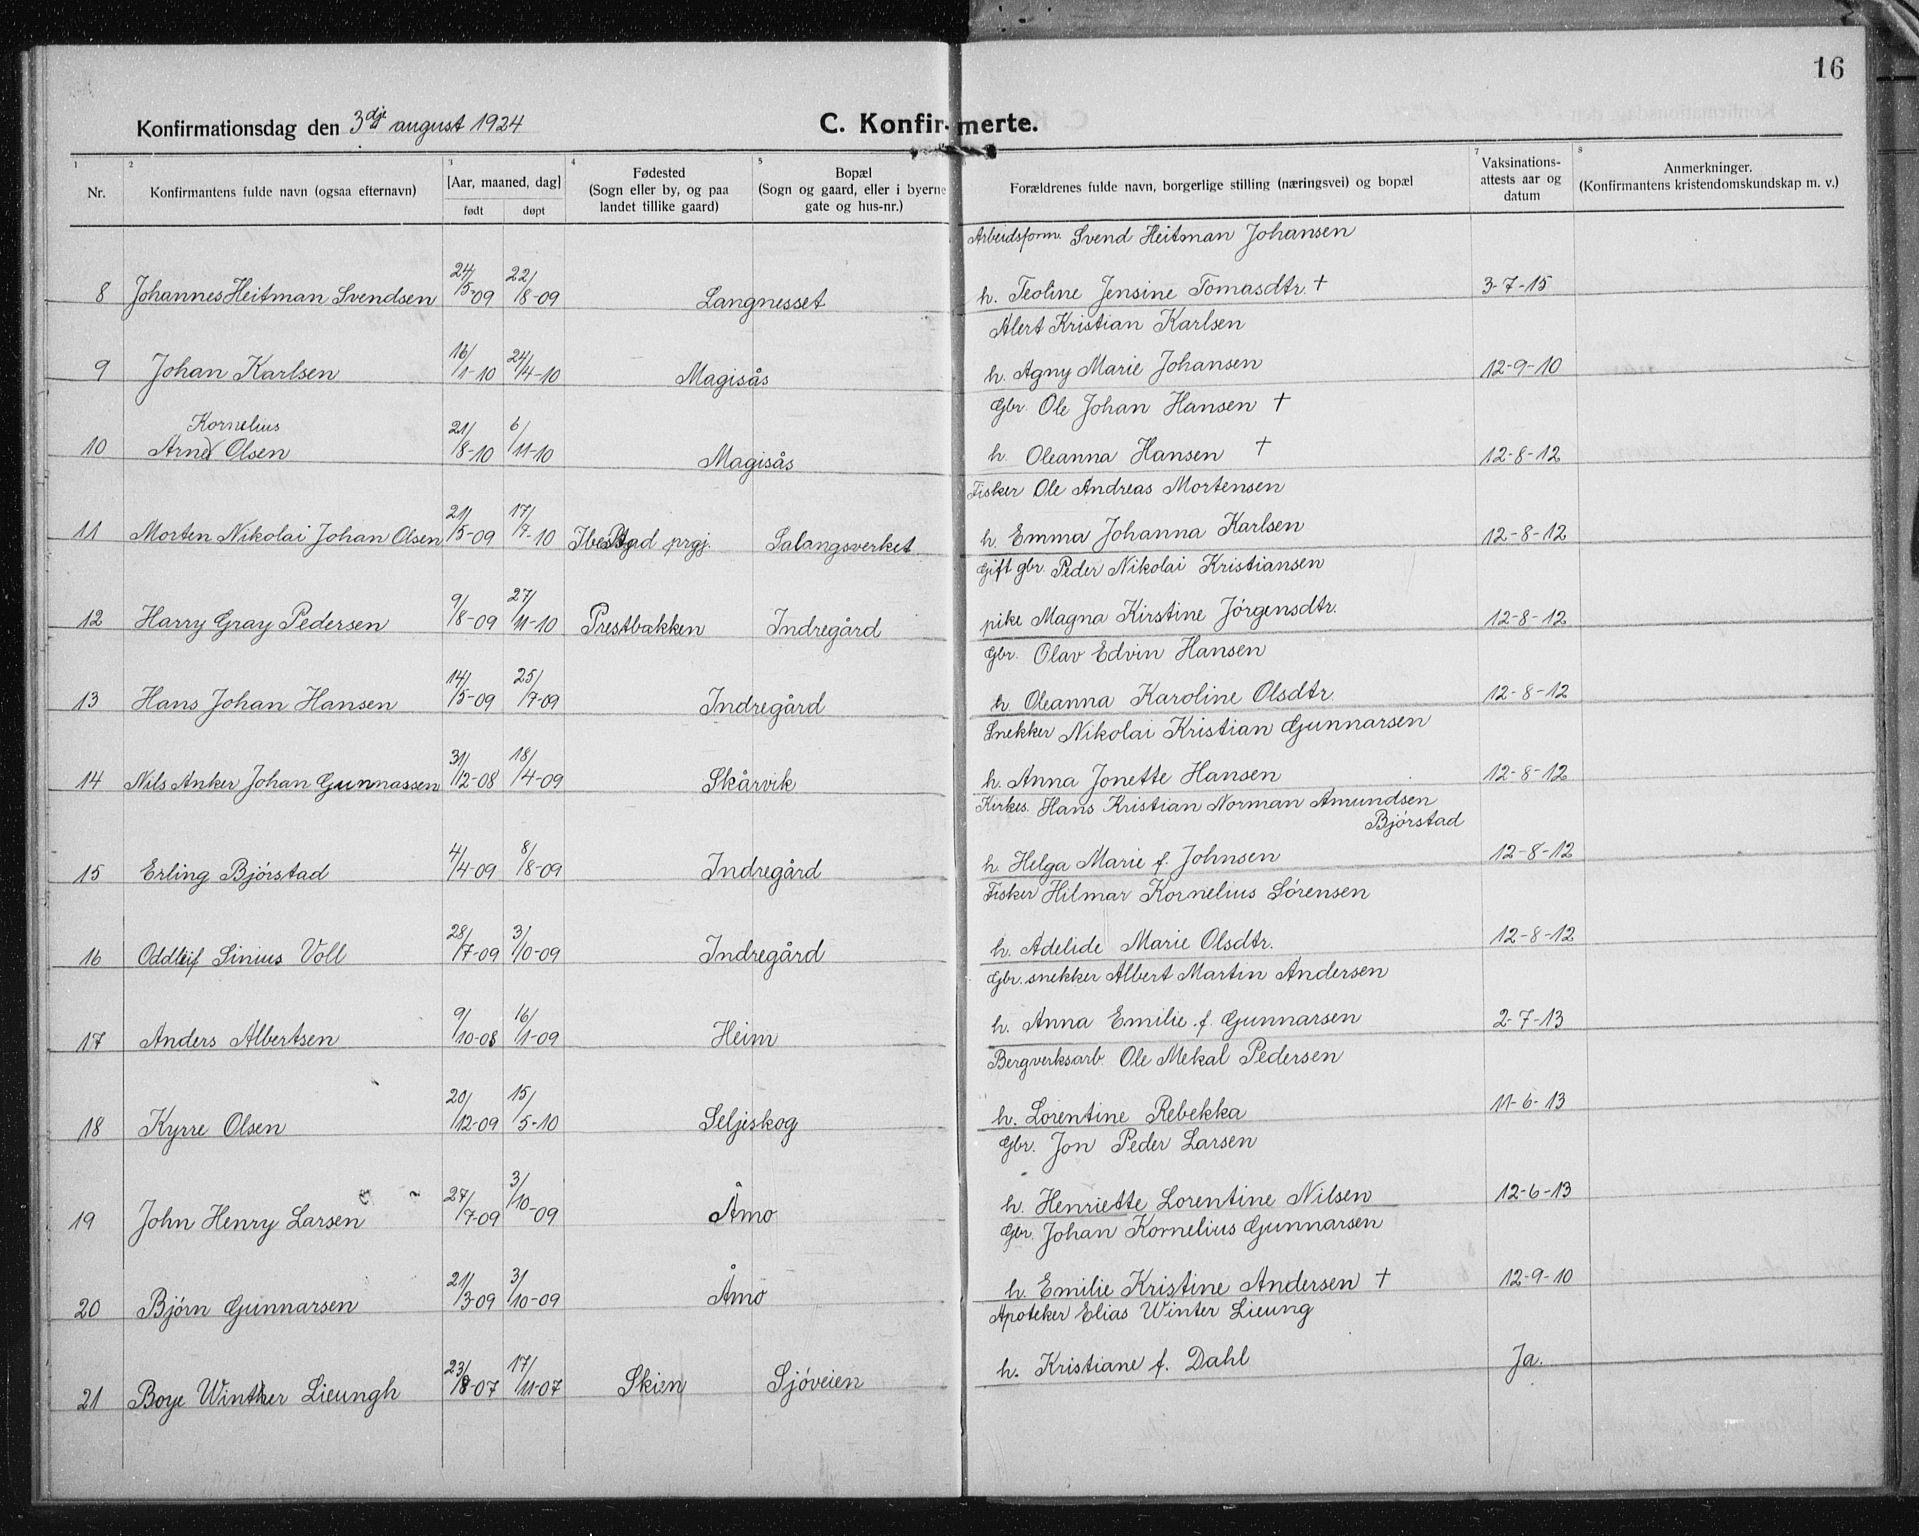 16
Konfirmationsdag den 3dje august 1924 C. Konfirmerte.
1 2 3 4 5 7 8
Nr. Konfirmantens fulde navn (ogsaa efternavn) [Aar, maaned, dag] født døpt Fødested (Sogn eller by, og paa landet tillike gaard) Bopæl (Sogn og gaard, eller i byerne gate og hus-nr.) Forældrenes fulde navn, borgerlige stilling (næringsvei) og bopæl Vaksinationsattests aar og datum Anmerkninger. (Konfirmantens kristendomskundskap m. v.)
Arbeidsform. Svend Heitman Johansen
8 Johannes Heitman Svendsen 24/5-09 22/8-09 Langnesset h. Teoline Jensine Tomasdtr. † 3-7-15
Alert Kristian Karlsen
9 Johan Karlsen 16/1-10 24/4-10 Magisås h. Agny Marie Johansen 12-9-10
Gbr. Ole Johan Hansen †
Kornelius
10 Arne Olsen 21/8-10 6/11-10 Magisås h. Oleanna Hansen † 12-8-12
Fisker Ole Andreas Mortensen
11 Morten Nikolai Johan Olsen 21/5-09 17/7-10 Ibestad prgj. Salangsverket h. Emma Johanna Karlsen 12-8-12
Gift gbr. Peder Nikolai Kristiansen
12 Harry Gray Pedersen 9/8-09 27/11-10 Prestbakken Indregård pike Magna Kirstine Jörgensdtr. 12-8-12
Gbr. Olav Edvin Hansen
13 Hans Johan Hansen 14/5-09 25/7-09 Indregård h. Oleanna Karoline Olsdtr. 12-8-12
Snekker Nikolai Kristian Gunnarsen
14 Nils Anker Johan Gunnassen 31/12-08 18/4-09 Skårvik h. Anna Jonette Hansen 12-8-12
Kirkes. Hans Kristian Norman Amundsen
Bjørstad
15 Erling Bjørstad 4/4-09 8/8-09 Indregård h. Helga Marie f. Johnsen 12-8-12
Fisker Hilmar Kornelius Sørensen
16 Oddleif Sinius Voll 28/7-09 3/10-09 Indregård h. Adelide Marie Olsdtr. 12-8-12
Gbr. snekker Albert Martin Andersen
17 Anders Albertsen 9/10-08 16/1-09 Heim h. Anna Emilie f. Gunnarsen 2-7-13
Bergverksarb. Ole Mekal Pedersen
18 Kyrre Olsen 20/12-09 15/5-10 Seljeskog h. Lorentine Rebekka 11-6-13
Gbr. Jon Peder Larsen
19 John Henry Larsen 27/7-09 3/10-09 Åmo h. Henriette Lorentine Nilsen 12-6-13
Gbr. Johan Kornelius Gunnarsen
20 Bjørn Gunnarsen 21/3-09 3/10-09 Åmo h. Emilie Kristine Andersen † 12-9-10
Apoteker Elias Winter Lieung
21 Boye Winther Lieungh 23/8-07 17/11-07 Skien Sjøveien h. Kristiane f. Dahl Ja.